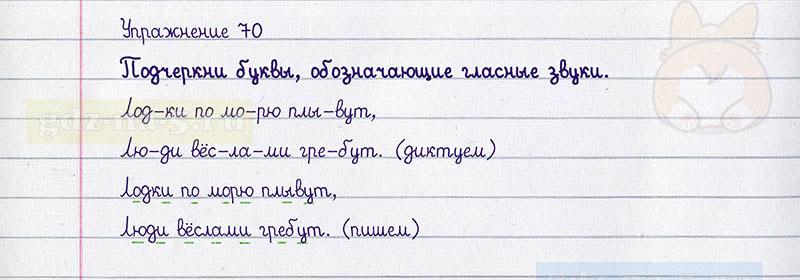 Упражнение 70
Подчеркни буквы, обозначающие гласные звуки.
Лод-ки по мо-рю плы-вут,
Лю-ди вёс-ла-ми гре-бут. (диктуем)
gdz-na-5.ru
Лодки по морю плывут,
Люди вёслами гребут. (пишем)